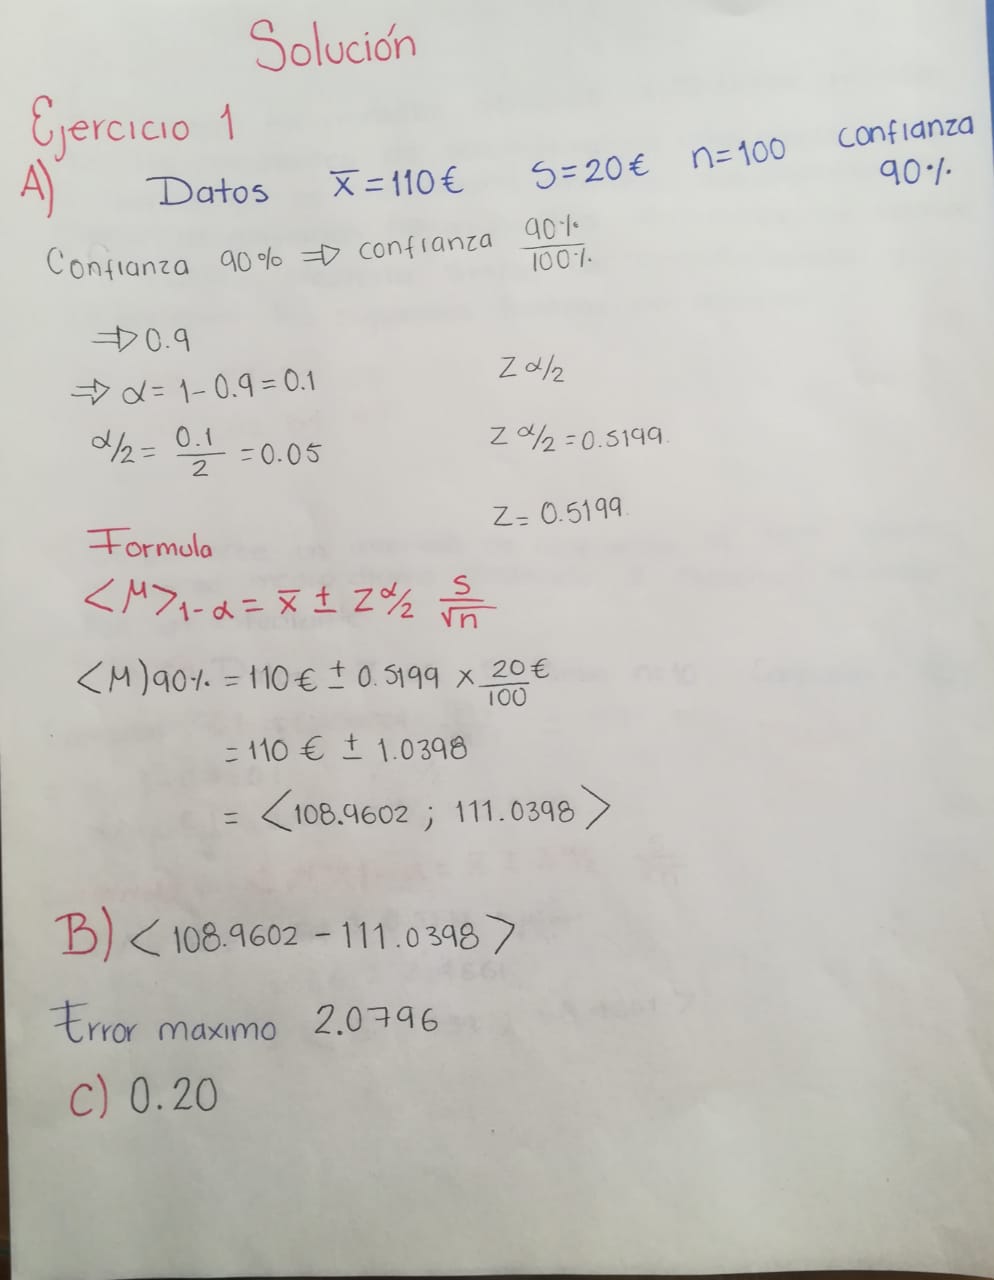 Solución
Ejercicio 1
A) Datos x̄ = 110€ S = 20€ n = 100 confianza 90%
Confianza 90% ⇒ confianza 90%/100%
⇒ 0.9
⇒ α = 1 - 0.9 = 0.1
α/2 = 0.1/2 = 0.05
Z α/2
Z α/2 = 0.5199.
Z = 0.5199.
Formula
<M>1-α = x̄ ± Z α/2 S/√n
<M)90% = 110€ ± 0.5199 × 20€/100
= 110 € ± 1.0398
= <108.9602 ; 111.0398>
B) <108.9602 - 111.0398>
Error maximo 2.0796
C) 0.20